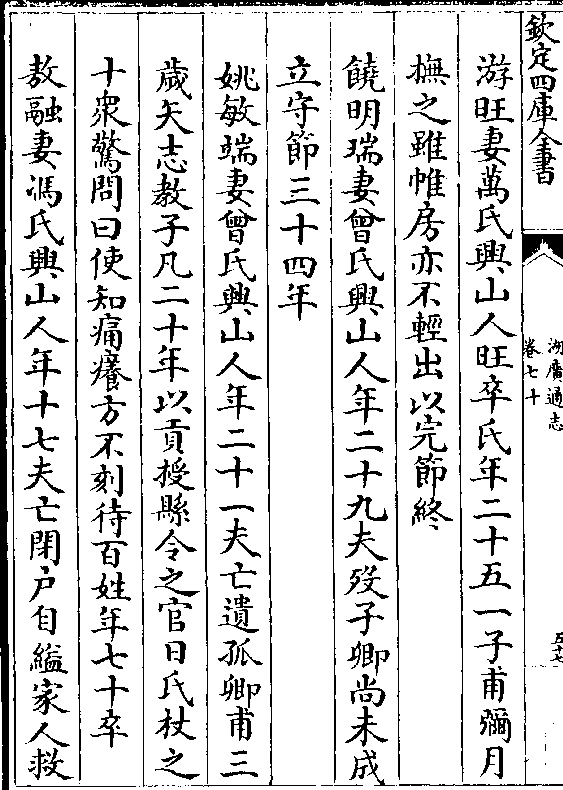 欽定四庫全書
湖廣通志
卷七十
五十七
游旺妻萬氏興山人旺卒氏年二十五一子甫彌月
撫之雖帷房亦不輕出以完節終
饒明瑞妻曾氏興山人年二十九夫歿子卿尚未成
立守節三十四年
姚敏端妻曾氏興山人年二十一夫亡遺孤卿甫三
歲矢志教子凡二十年以貢授縣令之官日氏杖之
十衆驚問曰使知痛癢方不刻待百姓年七十卒
敖融妻馮氏興山人年十七夫亡閉户自縊家人救